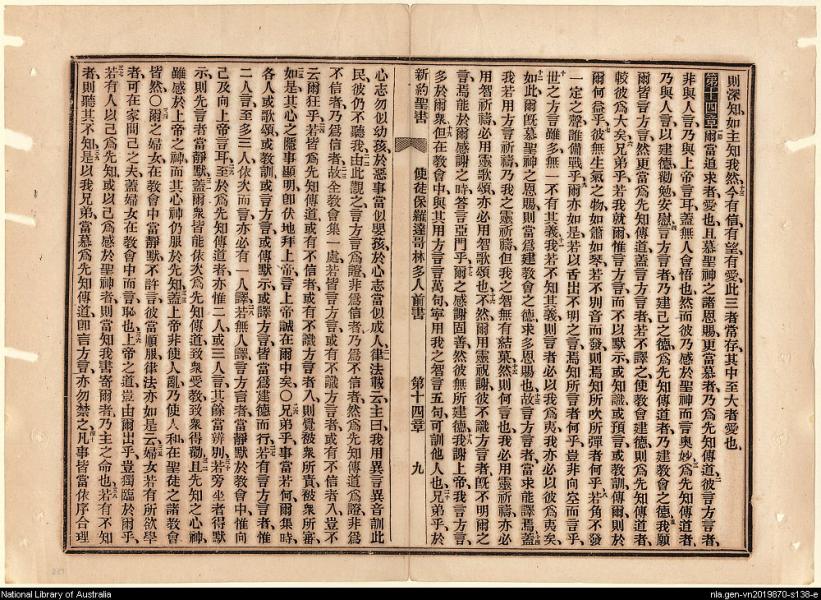 則深知如主知我然今有信有望有愛此三者常存其中至大者愛也
第十四章爾當追求者愛也且慕聖神之諸恩賜更當慕者乃爲先知傳道彼言方言者
非與人言乃與上帝言耳蓋無人會悟也然而彼乃感於聖神而言奧妙爲先知傳道者
乃與人言以建德勸勉安慰言方言者乃建己之德爲先知傳道者乃建教會之德我願
爾皆言方言然更當爲先知傳道蓋言方言者若不譯之使教會建德則爲先知傳道者
較彼爲大矣兄弟乎若我就爾惟言方言而不以默示或知識或預言或教訓傳爾則於
爾何益乎彼無生氣之物如簫如琴若不別音而發則焉知所吹所彈者何乎若角不發
一定之聲誰備戰乎爾亦如是若以舌出不明之言焉知所言者何乎豈非向空而言乎
世之方言雖多無一不有其義我若不知其義則言者必以我爲夷我亦必以彼爲夷矣
如此爾旣慕聖神之恩賜則當爲建教會之德求多恩賜也故言方言者當求能譯焉蓋
我若用方言祈禱乃我之靈祈禱但我之智無有結菓然則何言也我必用靈祈禱亦必
用智祈禱必用靈歌頌亦必用智歌頌也不然爾用靈祝謝彼不識方言者旣不明爾之
言焉能於爾感謝之時答言亞門乎爾之感謝固善然彼無所建德我謝上帝我言方言
多於爾衆但在教會中與其用方言言萬句寧用我之智言五句可訓他人也兄弟乎於
新約聖書 使徒保羅達哥林多人前書 第十四章 九
心志勿似幼孩於惡事當似嬰孩於心志當似成人律法載云主曰我用異言異音訓此
民彼仍不聽我由此觀之言方言爲證非爲信者乃爲不信者然爲先知傳道爲證非爲
不信者乃爲信者故全教會集一處若皆言方言或有不識方言者或有不信者入豈不
云爾狂乎若皆爲先知傳道或有不信者或有不識方言者入則覺被衆所責被衆所審
如是其心之隱事顯明卽伏地拜上帝言上帝誠在爾中矣〇兄弟乎事當若何爾集時
各人或歌頌或教訓或言方言或傳默示或譯方言皆當爲建德而行若有言方言者惟
二人言至多三人依次而言亦必有一人譯若無人譯言方言者當靜默於教會中惟向
己及向上帝言耳至於爲先知傳道者亦惟二人或三人言其餘當辨別若旁坐者得默
示則先言者當靜默蓋爾衆皆能依次爲先知傳道致衆受教致衆得勸且先知之心神
雖感於上帝之神而其心神仍服於先知蓋上帝非使人亂乃使人和在聖徒之諸教會
皆然〇爾之婦女在教會中當靜默不許言彼當順服律法亦如是云婦女若有所欲學
者可在家問己之夫蓋婦女在教會中而言恥也上帝之道豈由爾出乎豈獨臨於爾乎
若有人以己爲先知或以己爲感於聖神者則當知我書寄爾者乃主之命也若有不知
者則聽其不知是以我兄弟當慕爲先知傳道卽言方言亦勿禁之凡事皆當依序合理
National Library of Australia
nla.gen-vn2019870-s138-e